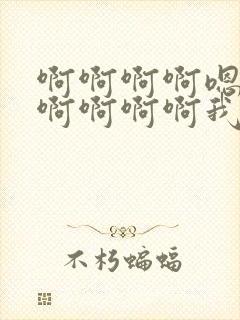 啊啊啊啊嗯
啊啊啊啊我
不朽蝙蝠